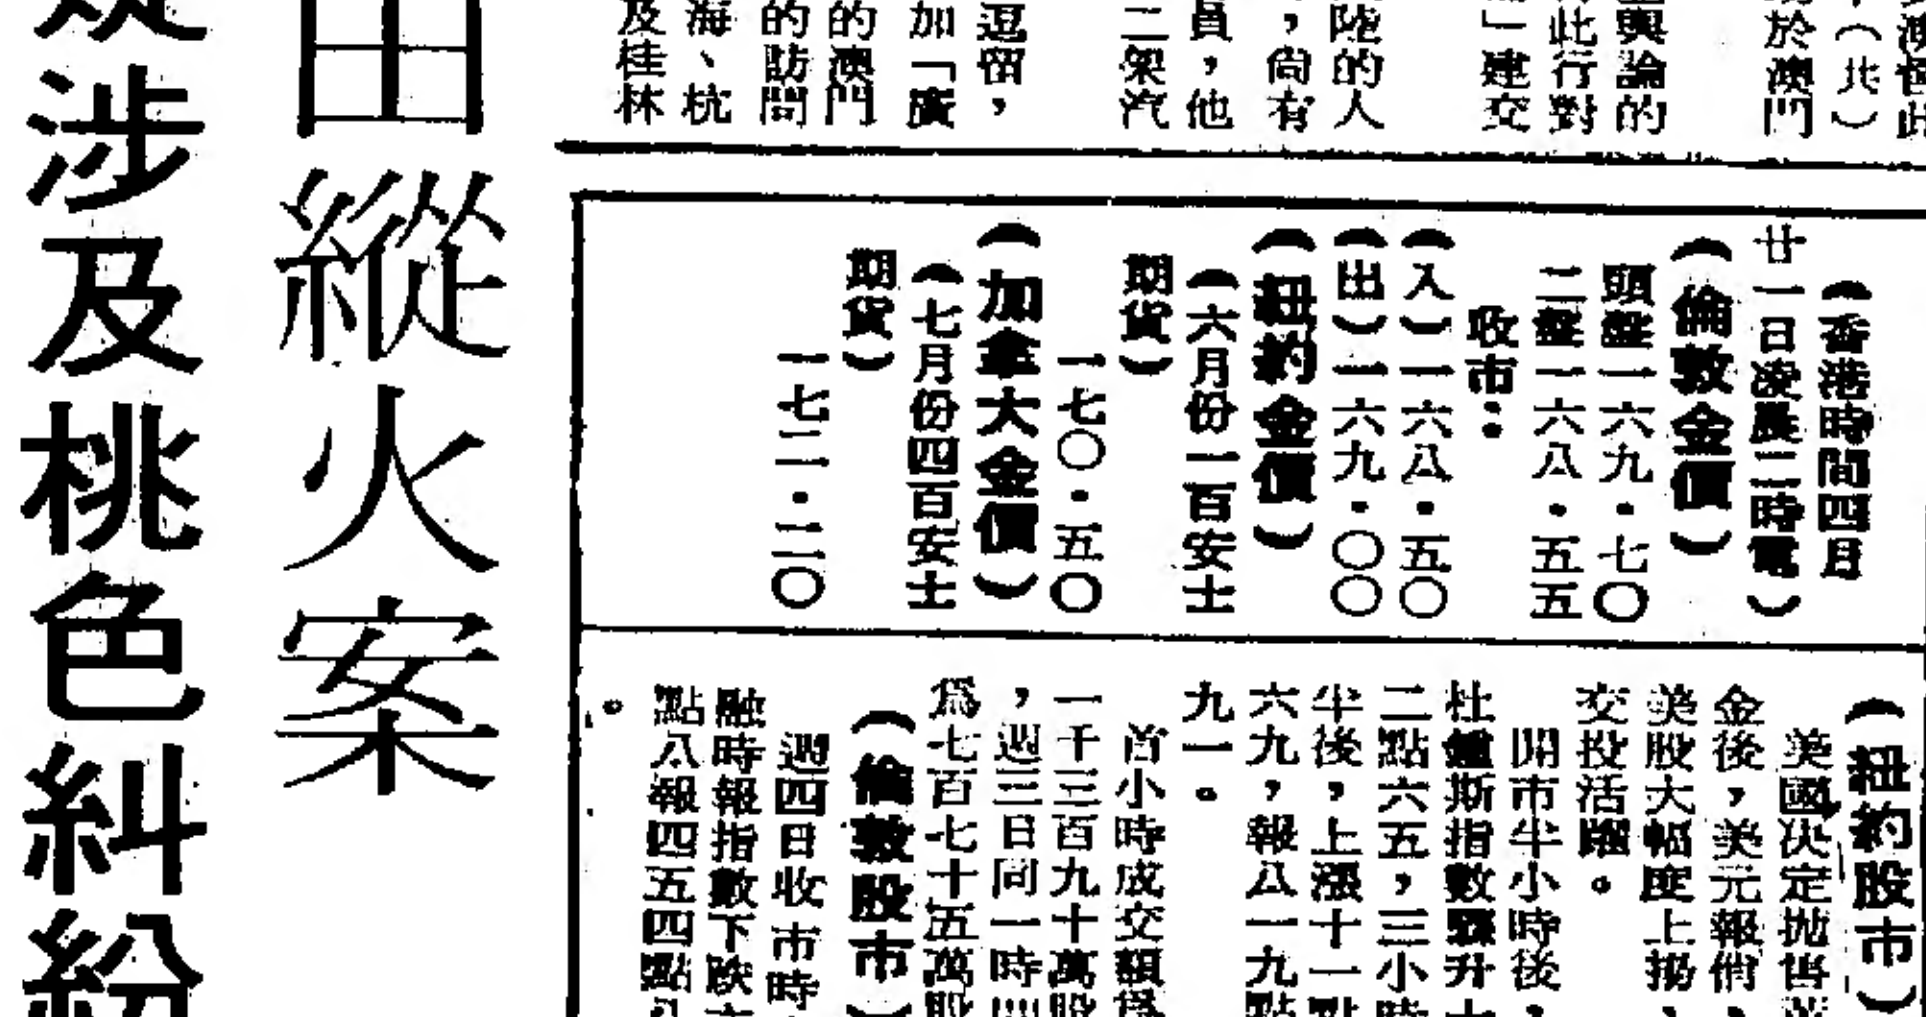 澳督此
（共）
於澳門
輿論的
此行對
」建交
陸的人
，尙有
員，他
二架汽
逗留，
加「廣
的澳門
的訪問
海、杭
及桂林
（香港時間四月
廿一日凌晨二時電）
（倫敦金價）
頭盤一六九·七〇
二盤一六八·五五
收市：
（入）一六八·五〇
（出）一六九·〇〇
（紐約金價）
（六月份一百安士
期貨）
一七〇·五〇
（加拿大金價）
（七月份四百安士
期貨）
（紐約股市）
美國決定拋售黃
金後，美元報俏，
美股大幅度上揚，
交投活躍。
開市半小時後，
杜鍾斯指數驟升十
二點六五，三小時
半後，上漲十一點
六九，報八一九點
九一。
首小時成交額爲
一千三百九十萬股
，週三日同一時間
爲七百七十五萬股
（倫敦股市）
週四日收市時
融時報指數下跌
點八報四五四點八
。
縱火案
涉及桃色糾紛